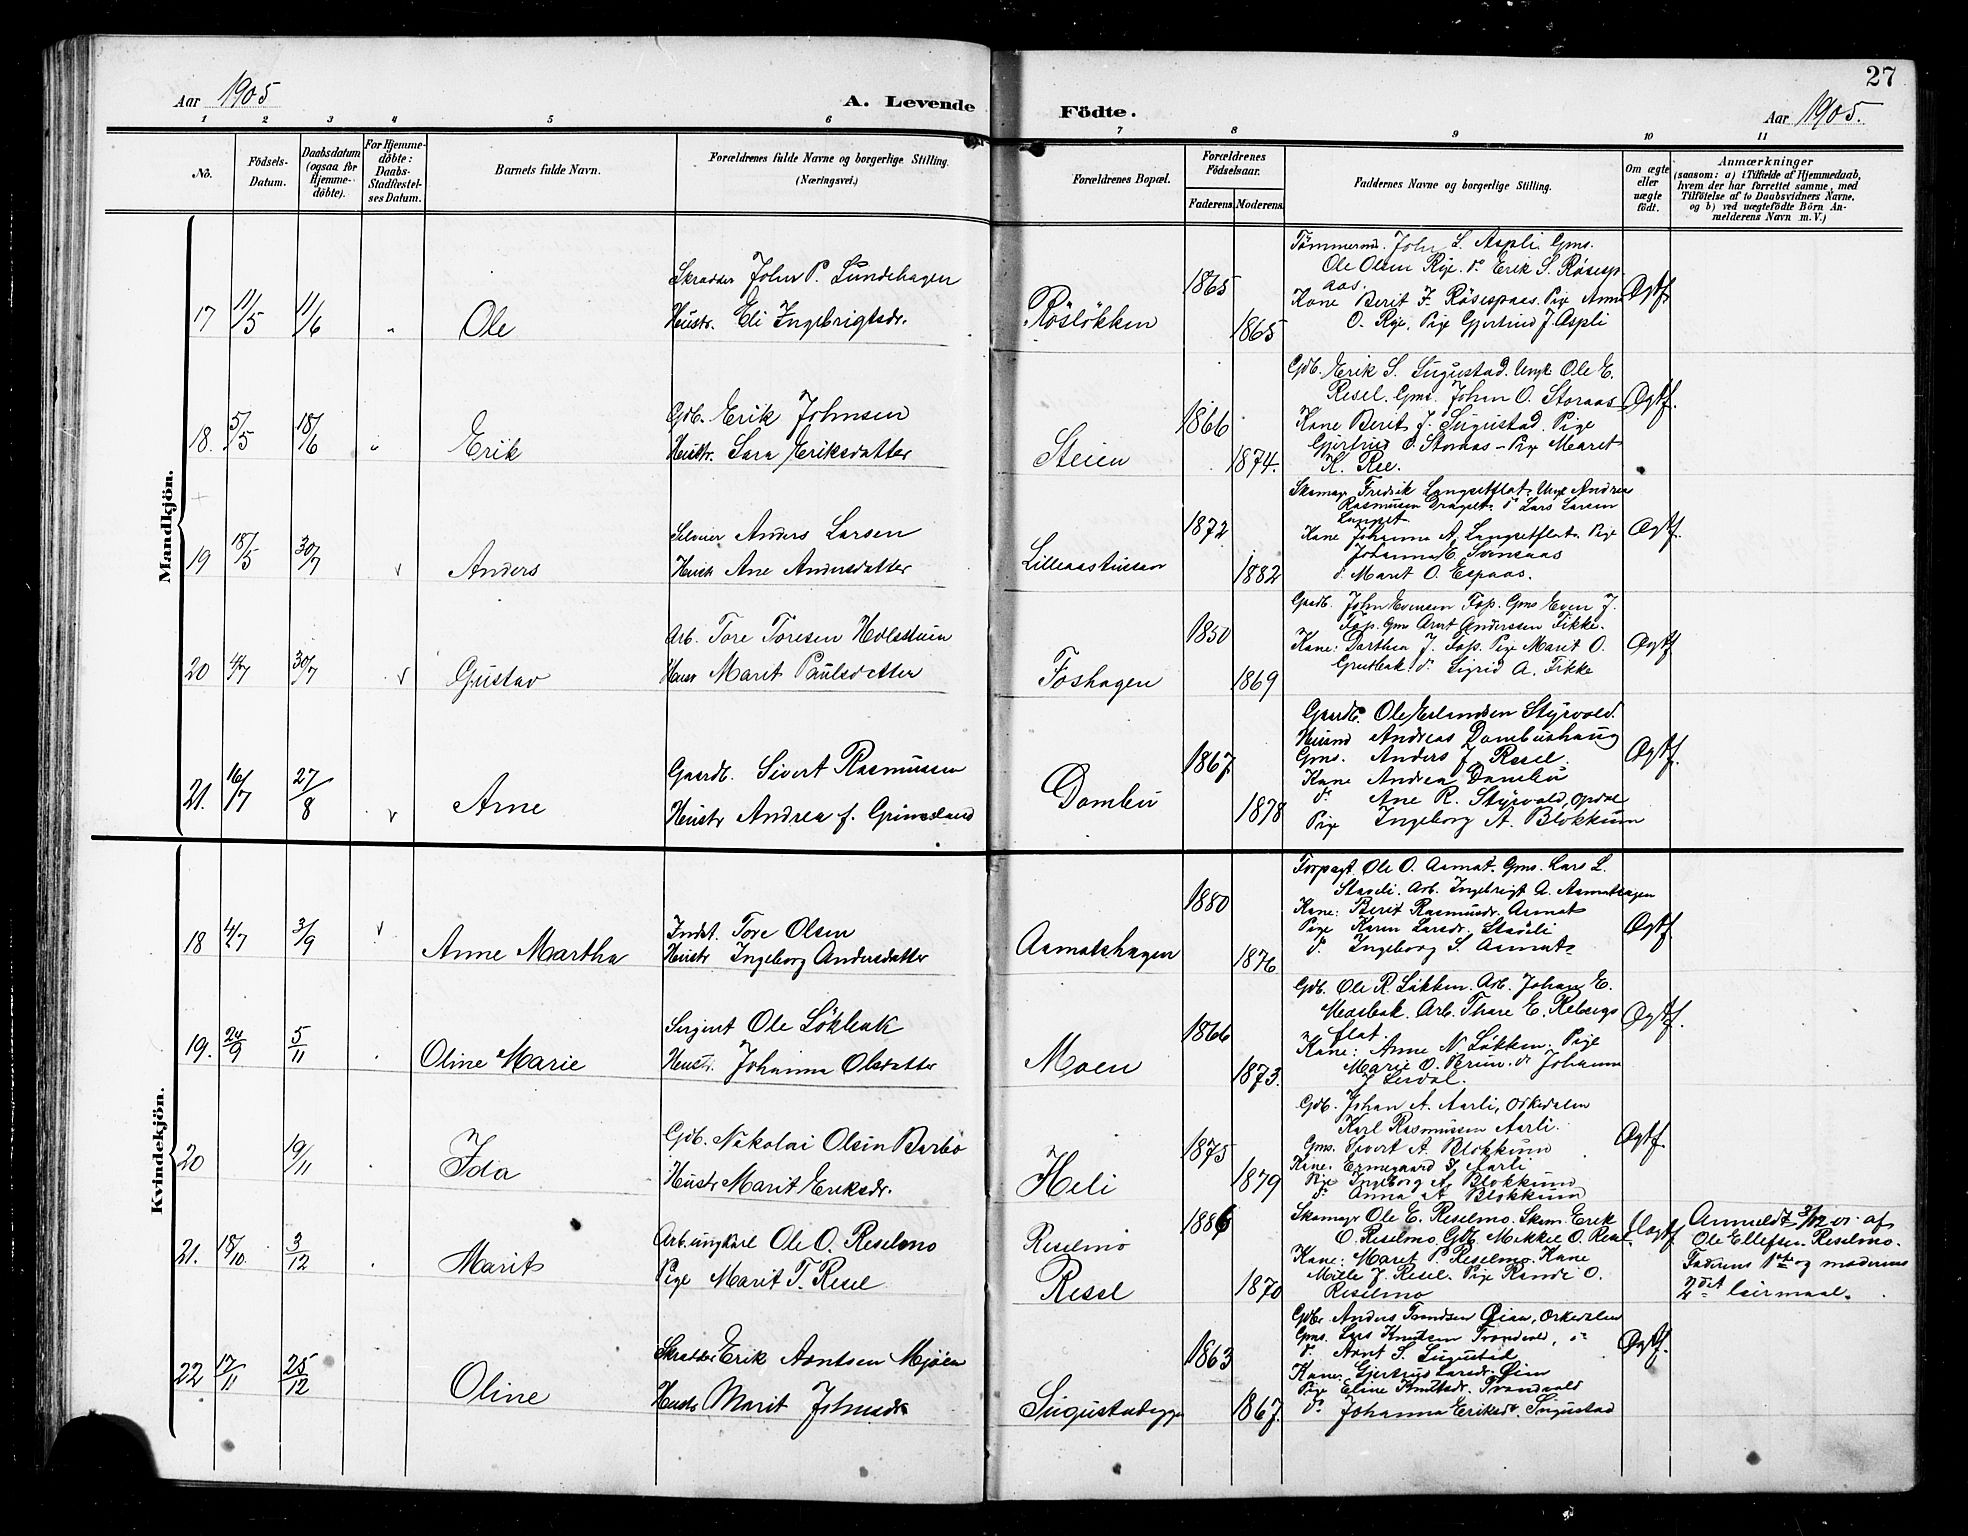 27
Aar 1905
A. Levende
Födte.
Aar 1905.
1 2 3 4 5 6 7 8 9 10 11
No.
Födsels-
Datum.
Daabsdatum
(ogsaa for
Hjemme-
døbte).
For Hjemme-
døbte:
Daabs-
Stadfæstel-
ses Datum.
Barnets fulde Navn.
Forældrenes fulde Navne og borgerlige Stilling.
(Næringsvei.)
Forældrenes Bopæl.
Forældrenes
Födselsaar.
Faderens.
Moderens.
Faddernes Navne og borgerlige Stilling.
Om ægte
eller
uægte
født.
Anmærkninger
(saasom: a) i Tilfælde af Hjemmedaab,
hvem der har forrettet samme, med
Tilföielse af to Daabsvidners Navne,
og b) ved uægtefödte Börn An-
melderens Navn m. V.)
Mandkjön.
17 11/5 11/6 " Ole
Skrædder John P. Lundehagen
Hustr. Eli Ingebrigtsdr.
Røsløkken
1865
1865
John S. Aspli. Gms.
Ole Olsen Rye. do Erik S. Røsesp-
aas.
Kone Berit F. Røsespaas. Pige Anne
O. Rye. Pige Gjertrud J. Aspli
Ægtf.
18. 5/5 18/6 " Erik
Gdb. Erik Johnsen
Hustr. Sara Eriksdatter
Steien
1866
1874.
Gdb. Erik S. Sugustad. Ungk Ole E.
Resel. Gms. John O. Storaas
Kone Berit J. Sugustad. Pige
Gjertrud O. Storaas - Pige Maret
K. Ree.
Ægtf.
19 18/5 30/7 v Anders
Anders Larsen
Hustr Ane Andersdatter
1872
1882
Skomagr Fredrik Langsetflat. Ungk Andrea
Rasmussen Draget. do Lars Larsen
Langset
Kone Johanna A. Langsetflat. Pige
Johanna E. Svensaas
do Marit O. Espaas.
Ægtf.
20 4/7 30/7 v Gustav
Arb. Tore Toresen Holsttuen
Hustr Marit Paulsdatter
Foshagen
1850
1869
Gaardb. John Evensen Fos. Gms Even J.
Fos. Gms Arnt Anderssen Fikke.
Kone: Dorthea J. Fos. Pige Marit O.
Grutbak. do Sigrid A. Fikke
Ægtf.
21. 16/7 27/8 v Arne
Gaardb. Sivert Rasmussen
Hustr Andrea f. Grimsland
Dombu
1867
1878
Gaardb. Ole Erlandsen Styrvold.
Husmd Andreas Dombushaug
Gms. Anders J. Resel.
Kone Andrea Dombu
do Ane R. Styrvold, Opdal
Pige Ingeborg A. Blokkum
Ægtf.
Kvindekjön.
18 4/7 3/9 v Anne Martha
Indst. Tore Olsen
Hustr Ingeborg Andersdatter
Aamotshagen
1880
1876
Forpagt Ole O. Aamot. Gms. Lars L.
Staveli. Arb. Ingebrigt A. Aamotshagen
Kone: Berit Rasmusdr. Aamot
Pige Karen Larsdr. Staveli
do Ingeborg S. Aamot
Ægtf.
19. 24/9 5/11 . Oline Marie
Sergent Ole Løkbak
Hustr. Johanna Olsdatter
Moen
1866
1873.
Gdb. Ole R. Løkken. Arb. Johan E.
Mosbak. Arb. Thore E. Rebergs
flat.
Kone: Anne N. Løkken. Pige
Marie O. Brun. do Johanne
J. Lerdal.
Ægtf.
20 19/11 . Ida
Gdb. Nikolai Olsen Barbo
Hustr Marit Eriksdr.
Heli
1875
1879
Gdb. Johan A. Aarli, Orkedalen
Karl Rasmussen Aarli.
Gms. Sivert A. Blokkum
Kone. Ermegaard S. Aarli
Pige Ingeborg A. Blokkum
do Anna A. Blokkum
Ægtf.
21. 18/10. 3/12 . Marit
Arb. ungkarl Ole O. Reselmo
Pige Marit T. Resel
Reselmo
Resel
1886
1870
Skomagr Ole E. Reselmo. Skom. Erik
O. Reselmo. Gdb. Mikkel O. Resel
Kone: Maret P. Reselmo. Kone
Mille J. Resel. Pige Randi O.
Reselmo
Uægtf
Anmeldt 3/12 05 af
Ole Ellefsen Reselmo.
Faderens 1ste og moderens
2det leirmaal.
22 17/11 25/12 Oline
Skrædder Erik Arntsen Mjøen
Hustr Marit Johnsdr
1863
1867.
Gdbr Anders Trondsen Øien, Orkedalen
Gms. Lars Knutsen Trondvold, do
do Arnt S. Sugustad
Kone. Gjertrud Larsdr. Øien
Pige Eline Knutsdr. Trondvold
do Johanna Eriksdr. Sugustad
Ægtf.